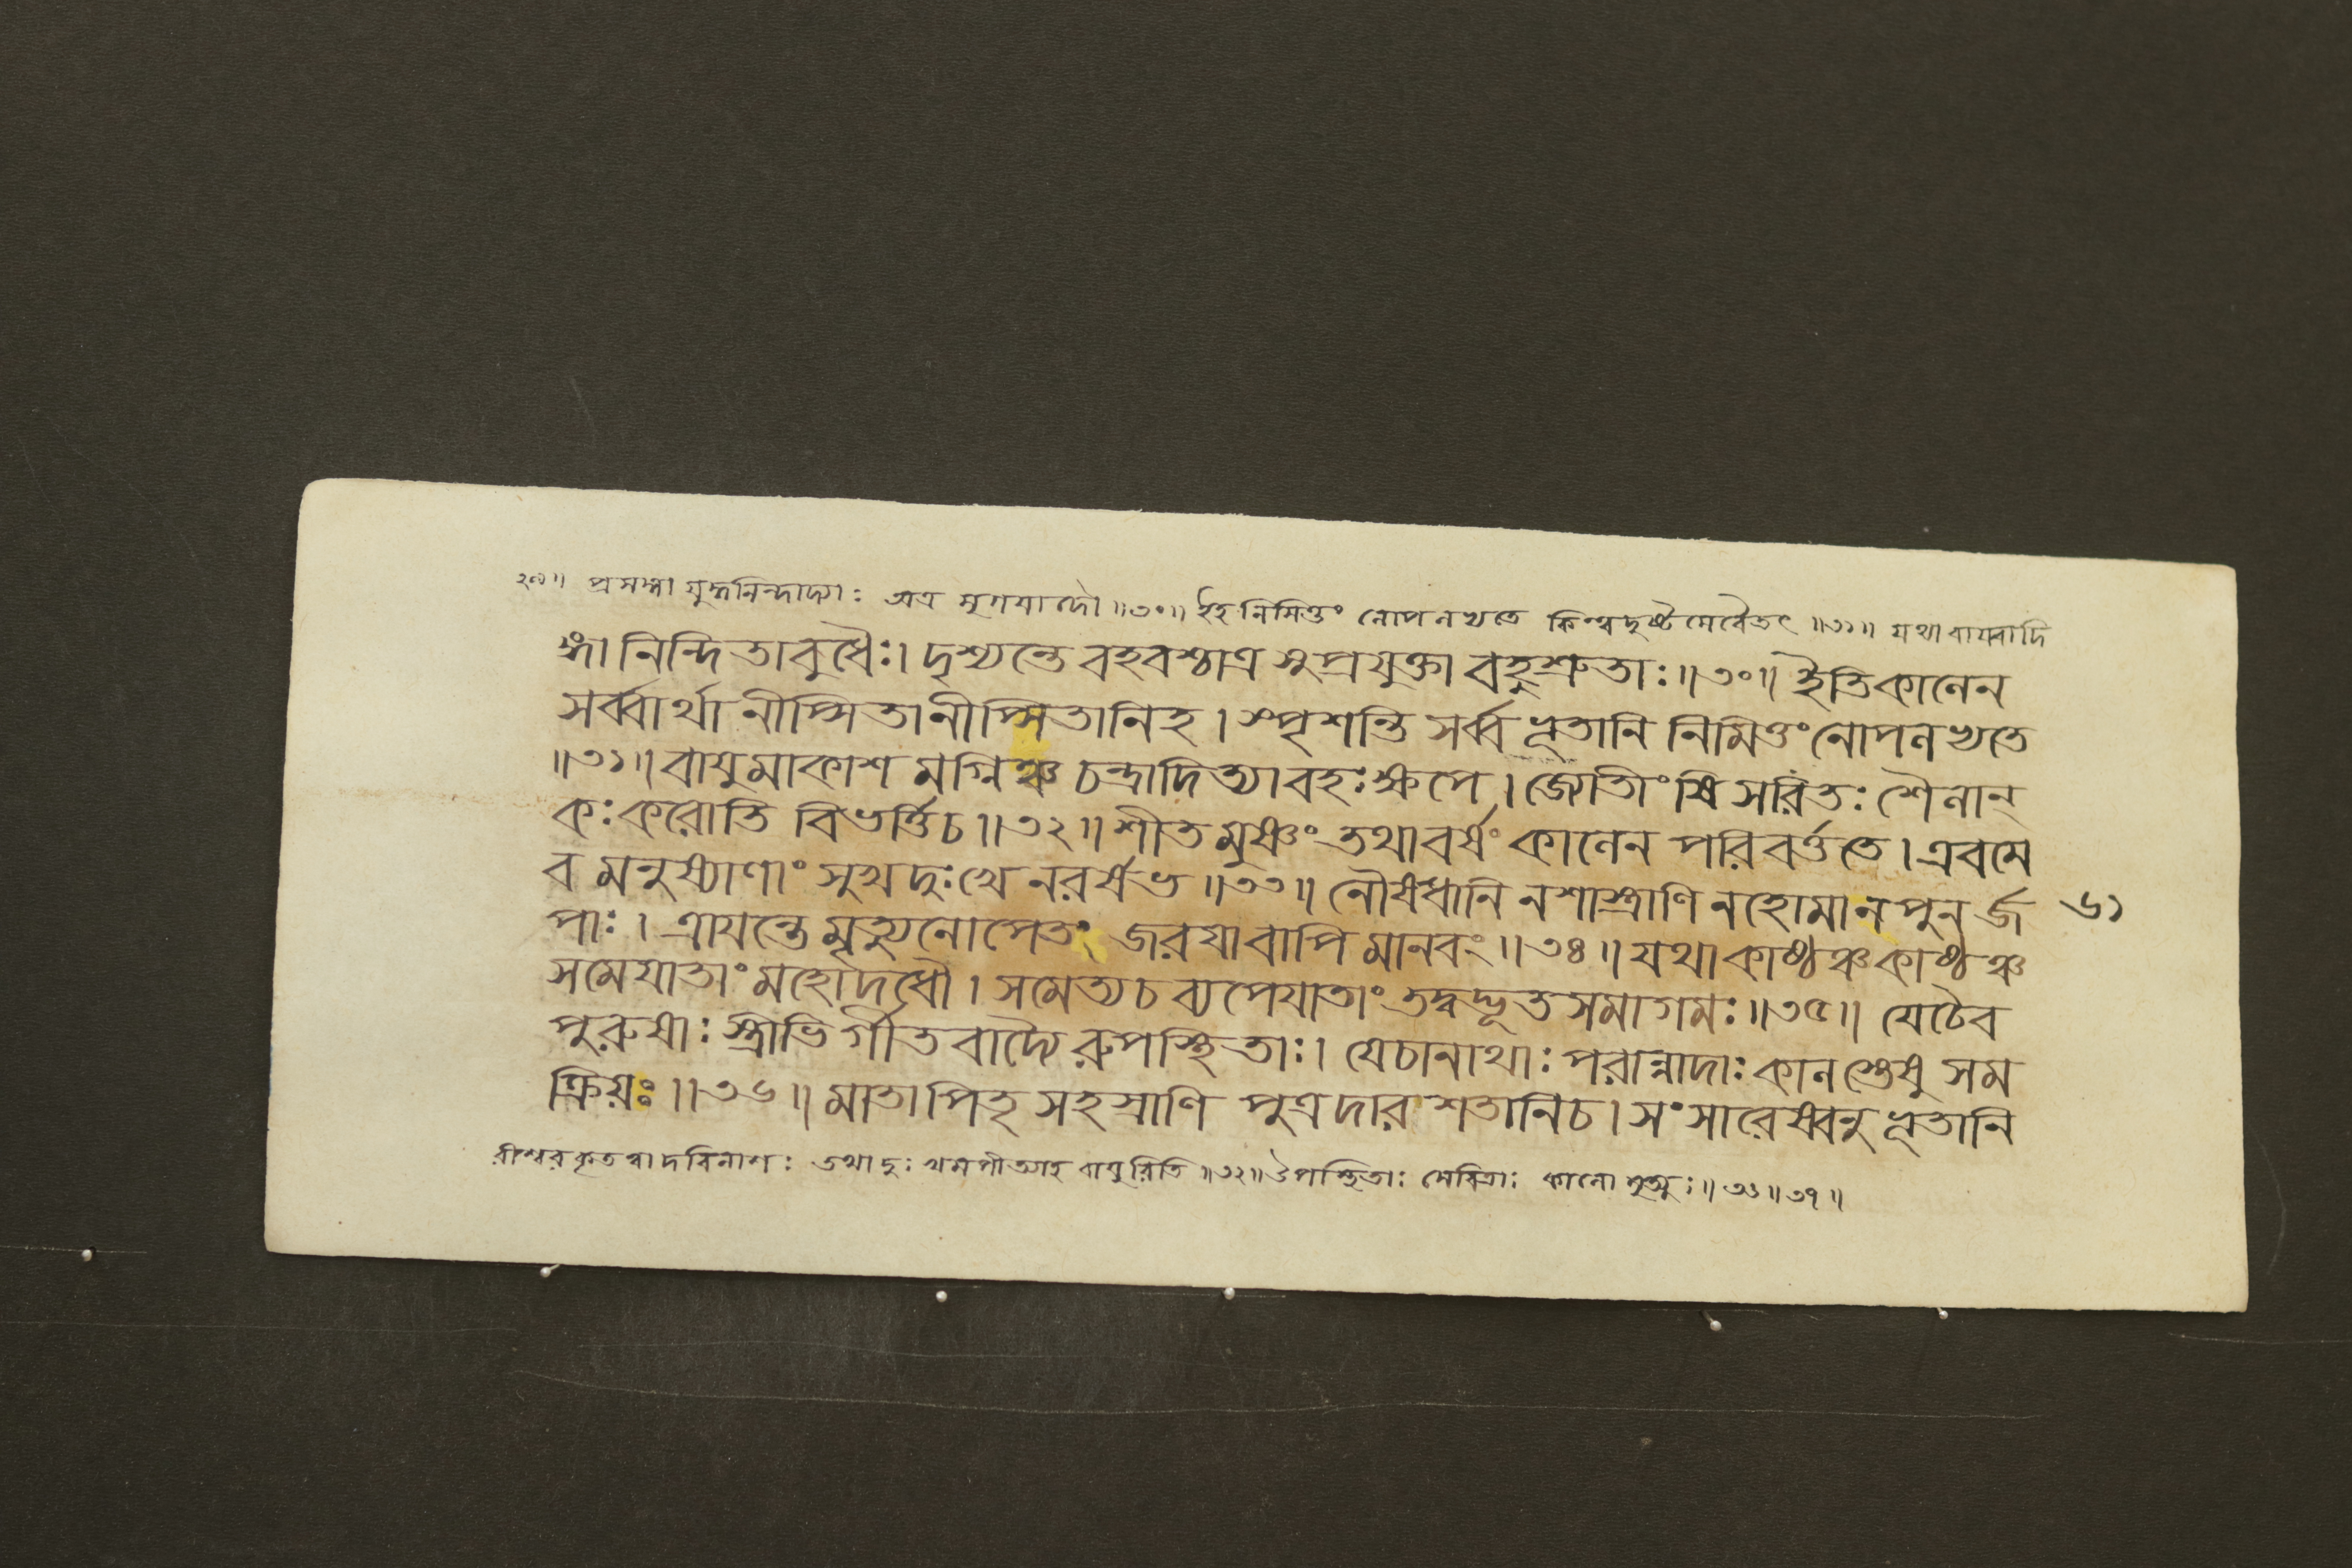 ২৯॥ প্রসঙ্গা যুদ্ধনিন্দাদ্যাঃ অত্র মৃগয়াদৌ ॥৩০॥ ইহ নিমিত্তং নোপলভ্যতে কিন্ত্বদৃষ্টমেবৈতৎ ॥৩১॥ যথা বায্বাদি
ঙ্গা নিন্দিতাবুধৈঃ। দৃশ্যন্তে বহবশ্চাত্র সুপ্রযুক্তা বহুশ্রুতাঃ॥৩০॥ ইতিকালেন
সর্ব্বার্থা নীপ্সিতানীপ্সিতানিহ। স্পৃশন্তি সর্ব্বভূতানি নিমিত্তং নোপলভ্যতে
॥৩১॥ বাযুমাকাশ মগ্নিঞ্চ চন্দ্রাদিত্যাবহঃক্ষপে। জ্যোতীংষি সরিতঃ শৈলান্
কঃ করোতি বিভর্ত্তিচ॥৩২॥ শীতমুষ্ণং তথাবর্ষং কালেন পরিবর্ত্ততে। এবমে
ব মনুষ্যাণাং সুখদুঃখে নরর্ষভ॥৩৩॥ নৌষধানি নশাস্ত্রাণি নহোমানপুনর্জ
পাঃ। ত্রাযন্তে মৃত্যুনোপেতং জরযাবাপি মানবং॥৩৪॥ যথাকাষ্ঠঞ্চকাষ্ঠঞ্চ
৬১
সমেযাতাং মহোদধৌ। সমেত্যচ ব্যপেযাতাং তদ্বদ্ভূতসমাগমঃ॥৩৫॥ যেচৈব
পুরুষাঃ স্ত্রীভির্গীতবাদ্যৈরুপস্থিতাঃ। যেচানাথাঃ পরান্নাদাঃ কালস্তেষু সম
ক্রিয়ঃ॥৩৬॥ মাতাপিতৃসহস্রাণি পুত্রদারশতানিচ। সংসারেষ্বনুভূতানি
রীশ্বরকৃত বিনাশঃ তথা বাযুরিতি ॥৩২॥ উপস্থিতাঃ সেবিতাঃ কালো মৃত্যুঃ॥৩৬॥৩৭॥